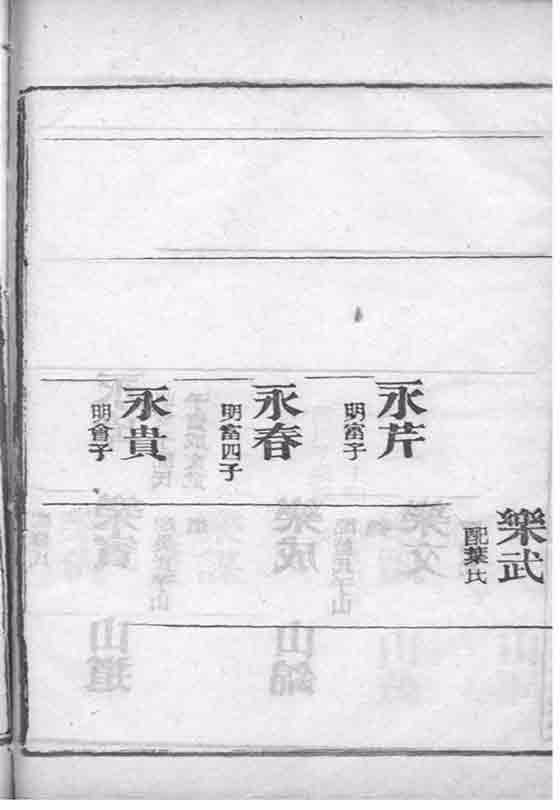 永芹
明富子
永春
明富四子
永貴
明會子
樂武
配葉氏